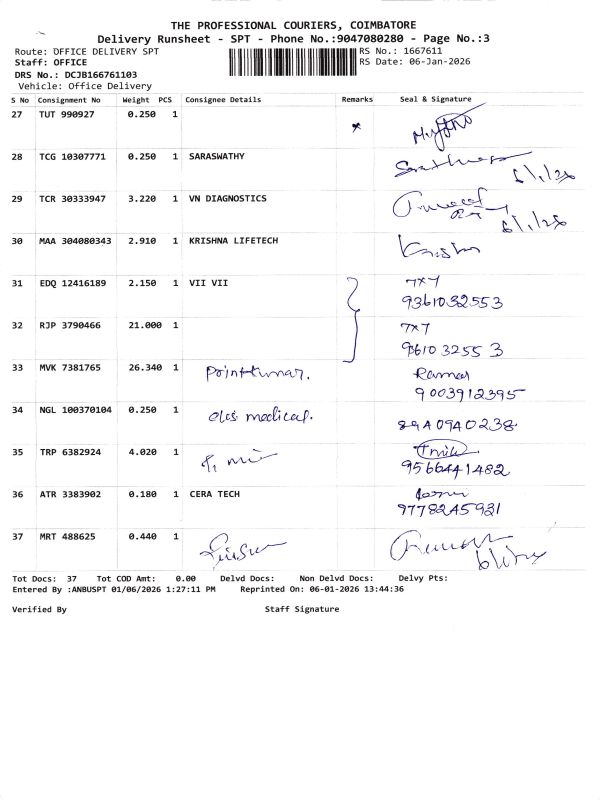 THE PROFESSIONAL COURIERS, COIMBATORE
Delivery Runsheet - SPT - Phone No.:9047080280 - Page No.:3
Route: OFFICE DELIVERY SPT RS No.: 1667611
Staff: OFFICE RS Date: 06-Jan-2026
DRS No.: DCJB166761103
Vehicle: Office Delivery
S No Consignment No Weight PCS Consignee Details Remarks Seal & Signature
27 TUT 990927 0.250 1
28 TCG 10307771 0.250 1 SARASWATHY
6/1/26
29 TCR 30333947 3.220 1 VN DIAGNOSTICS
6/1/26
30 MAA 304080343 2.910 1 KRISHNA LIFETECH
31 EDQ 12416189 2.150 1 VII VII 7x7
9361032553
32 RJP 3790466 21.000 1 7x7
9361032553
33 MVK 7381765 26.340 1 Raman
9003912395
34 NGL 100370104 0.250 1 medical.
8940940238
35 TRP 6382924 4.020 1
9566441482
36 ATR 3383902 0.180 1 CERA TECH
9778245921
37 MRT 488625 0.440 1
Tot Docs: 37 Tot COD Amt: 0.00 Delvd Docs: Non Delvd Docs: Delvy Pts:
Entered By :ANBUSPT 01/06/2026 1:27:11 PM Reprinted On: 06-01-2026 13:44:36
Verified By Staff Signature